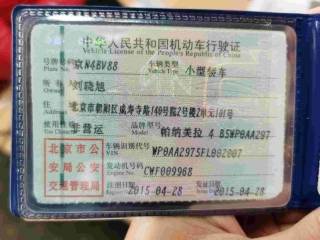 中华人民共和国机动车行驶证
Vehicle License of the People's Republic of China
号牌号码 京N4BV88 车辆类型 小型轿车
Plate No. Vehicle Type
所有人 刘晓旭
住址 北京市朝阳区成寿寺路149号院2号楼2单元101号
使用性质 非营运 品牌型号 帕纳美拉 4 BSWP0AA297
北京市公安局公安交通管理局
车辆识别代号 WP0AA2975FL002007
VIN
发动机号码 CWF009968
Engine No.
注册日期 2015-04-28 发证日期 2015-04-28